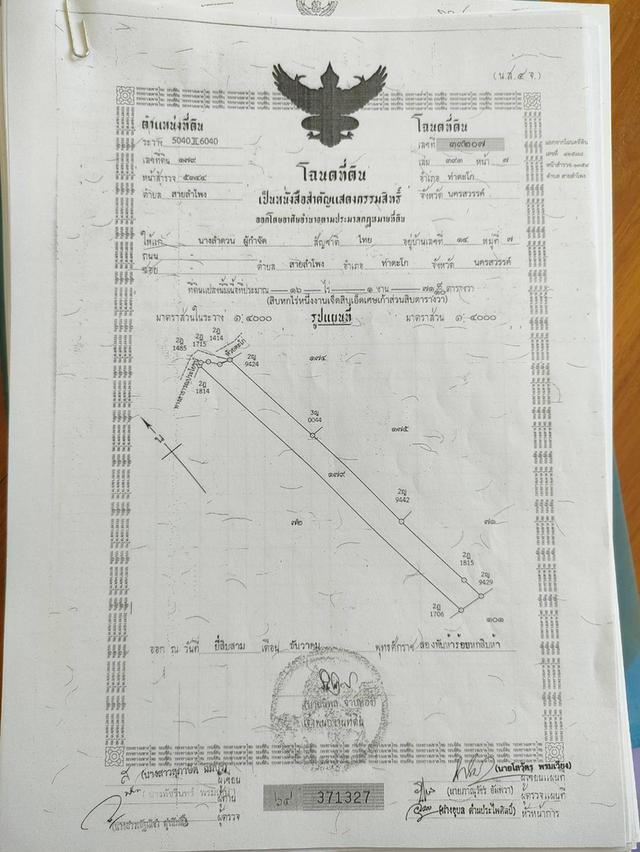 (น.ส.๔ จ.)
ตำแหน่งที่ดิน
ระวาง 5040 II 6040
เลขที่ดิน ๑๗๙
หน้าสำรวจ ๕๓๔๔
ตำบล สายลำโพง
โฉนดที่ดิน
เลขที่ ๓๙๒๐๗
เล่ม ๓๙๓ หน้า ๗
อำเภอ ท่าตะโก
จังหวัด นครสวรรค์
ตำบล สายลำโพง
โฉนดที่ดิน
เป็นหนังสือสำคัญแสดงกรรมสิทธิ์
ออกโดยอาศัยอำนาจตามประมวลกฎหมายที่ดิน
ให้แก่ นางลำดวน ผู้กำจัด สัญชาติ ไทย อยู่บ้านเลขที่ ๑๔ หมู่ที่ ๗
ถนน -
ซอย - ตำบล สายลำโพง อำเภอ ท่าตะโก จังหวัด นครสวรรค์
ที่ดินแปลงนี้มีเนื้อที่ประมาณ ๑๖ ไร่ ๑ งาน ๗๑ ๙/๑๐ ตารางวา
(สิบหกไร่หนึ่งงานเจ็ดสิบเอ็ดเศษเก้าส่วนสิบตารางวา)
มาตราส่วนในระวาง ๑:๔๐๐๐
รูปแผนที่
มาตราส่วน ๑:๔๐๐๐
2ฎ 1485
2ฎ 1715
2ฎ 1414
2ญ 9424
2ฎ 1814
ทางสาธารณประโยชน์
๑๗๔
3ญ 0044
๑๗๕
๑๗๙
2ญ 9442
๗๒
๗๑
2ฎ 1815
2ญ 9429
2ฎ 1706
๑๐๑
น
ออก ณ วันที่ ยี่สิบสาม เดือน ธันวาคม พุทธศักราช สองพันห้าร้อยหกสิบห้า
เจ้าพนักงานที่ดิน
ผู้เขียน
ผู้ทาน
ผู้ตรวจ
๖๔ 371327
(นายโสวัตร พรมเวียง)
ผู้เขียนแผนที่
ผู้ตรวจแผนที่
หัวหน้าการ